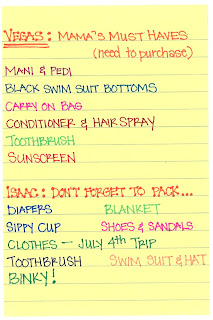 VEGAS: MAMA'S MUST HAVES
(need to purchase)
MANI & PEDI
BLACK SWIM SUIT BOTTOMS
CARRY ON BAG
CONDITIONER & HAIRSPRAY
TOOTHBRUSH
SUNSCREEN
ISAAC: DON'T FORGET TO PACK...
DIAPERS BLANKET
SIPPY CUP SHOES & SANDALS
CLOTHES - JULY 4th TRIP
TOOTHBRUSH SWIM SUIT & HAT
BINKY!